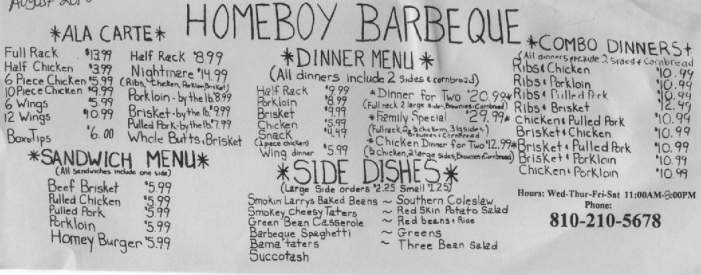 August
HOMEBOY BARBEQUE
*ALA CARTE*
Full Rack $13.99
Half Chicken $3.99
6 Piece Chicken $5.99
10 Piece Chicken $9.99
6 Wings $5.99
12 Wings $10.99
Box Tips $6.00
Half Rack $8.99
Nightmare $14.99
(Ribs, Chicken, Porkloin, Brisket)
Porkloin-by the lb 8.99
Brisket-by the lb. $9.99
Pulled Pork-by the lb $7.99
Whole Butts, Brisket
*SANDWICH MENU*
(All Sandwiches include one side)
Beef Brisket $5.99
Pulled Chicken $5.99
Pulled Pork $5.99
Porkloin $5.99
Homey Burger $5.99
*DINNER MENU*
(All dinners include 2 sides & cornbread)
Half Rack $9.99
Porkloin $8.99
Brisket $9.99
Chicken $5.99
Snack $4.49
(2 piece chicken)
Wing dinner $5.99
*Dinner for Two $20.99*
(Full rack 2 large sides, Brownies & Cornbread)
*Family Special $29.99*
(Full rack, 2 ½ chicken, 3 lg sides)
Brownies & Cornbread
*Chicken Dinner for Two $12.99*
(½ chicken, 2 large sides, Brownies, Cornbread)
*SIDE DISHES*
(Large Side orders $2.25 Small $1.25)
Smokin Larrys Baked Beans ~ Southern Coleslaw
Smokey Cheesy Taters ~ Red Skin Potato Salad
Green Bean Casserole ~ Red beans & Rice
Barbeque Spaghetti ~ Greens
Bama taters ~ Three Bean Salad
Succotash
*COMBO DINNERS*
(All dinners include 2 Sides & Cornbread
Ribs & Chicken $10.99
Ribs & Porkloin $10.99
Ribs & Pulled Pork $10.99
Ribs & Brisket $12.49
Chicken & Pulled Pork $10.99
Brisket & Chicken $10.99
Brisket & Pulled Pork $10.99
Brisket & Porkloin $10.99
Chicken & Porkloin $10.99
Hours: Wed-Thur-Fri-Sat 11:00AM-8:00PM
Phone:
810-210-5678